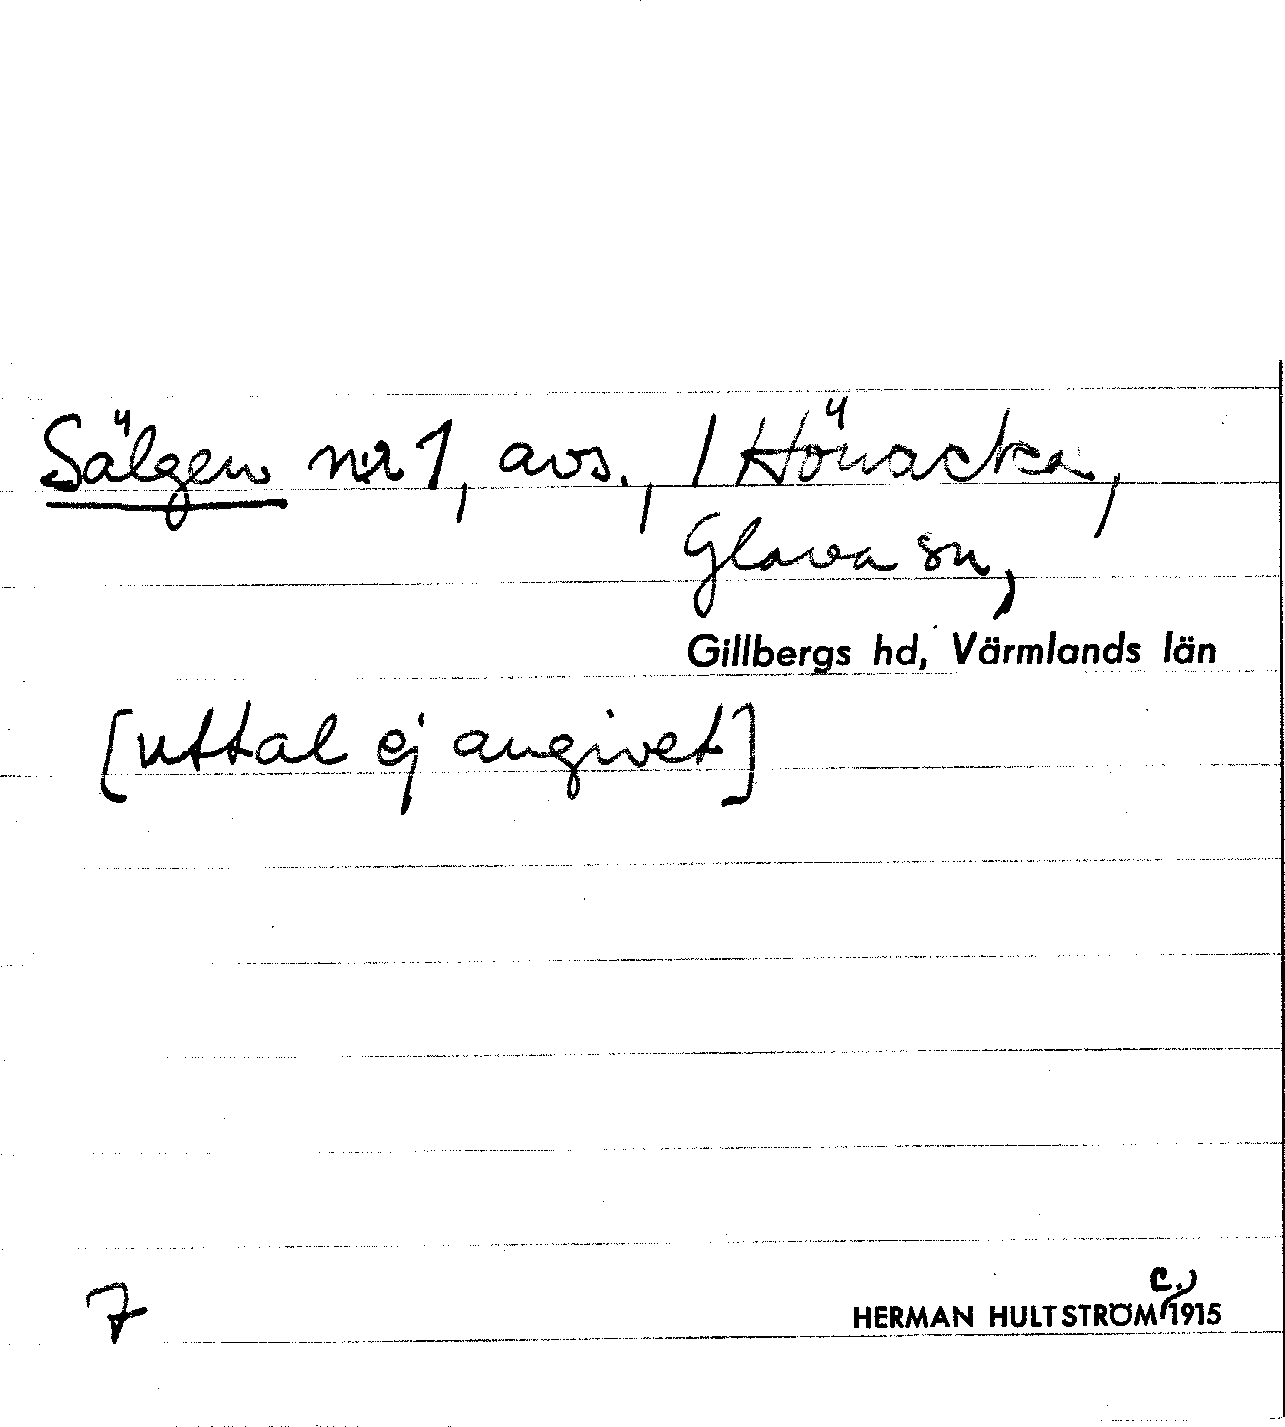 Sälgen nr 1, avs., / Hönacka,
Glava sn,
Gillbergs hd, Värmlands län
[uttal ej angivet]
7
c.)
HERMAN HULTSTRÖM 1915